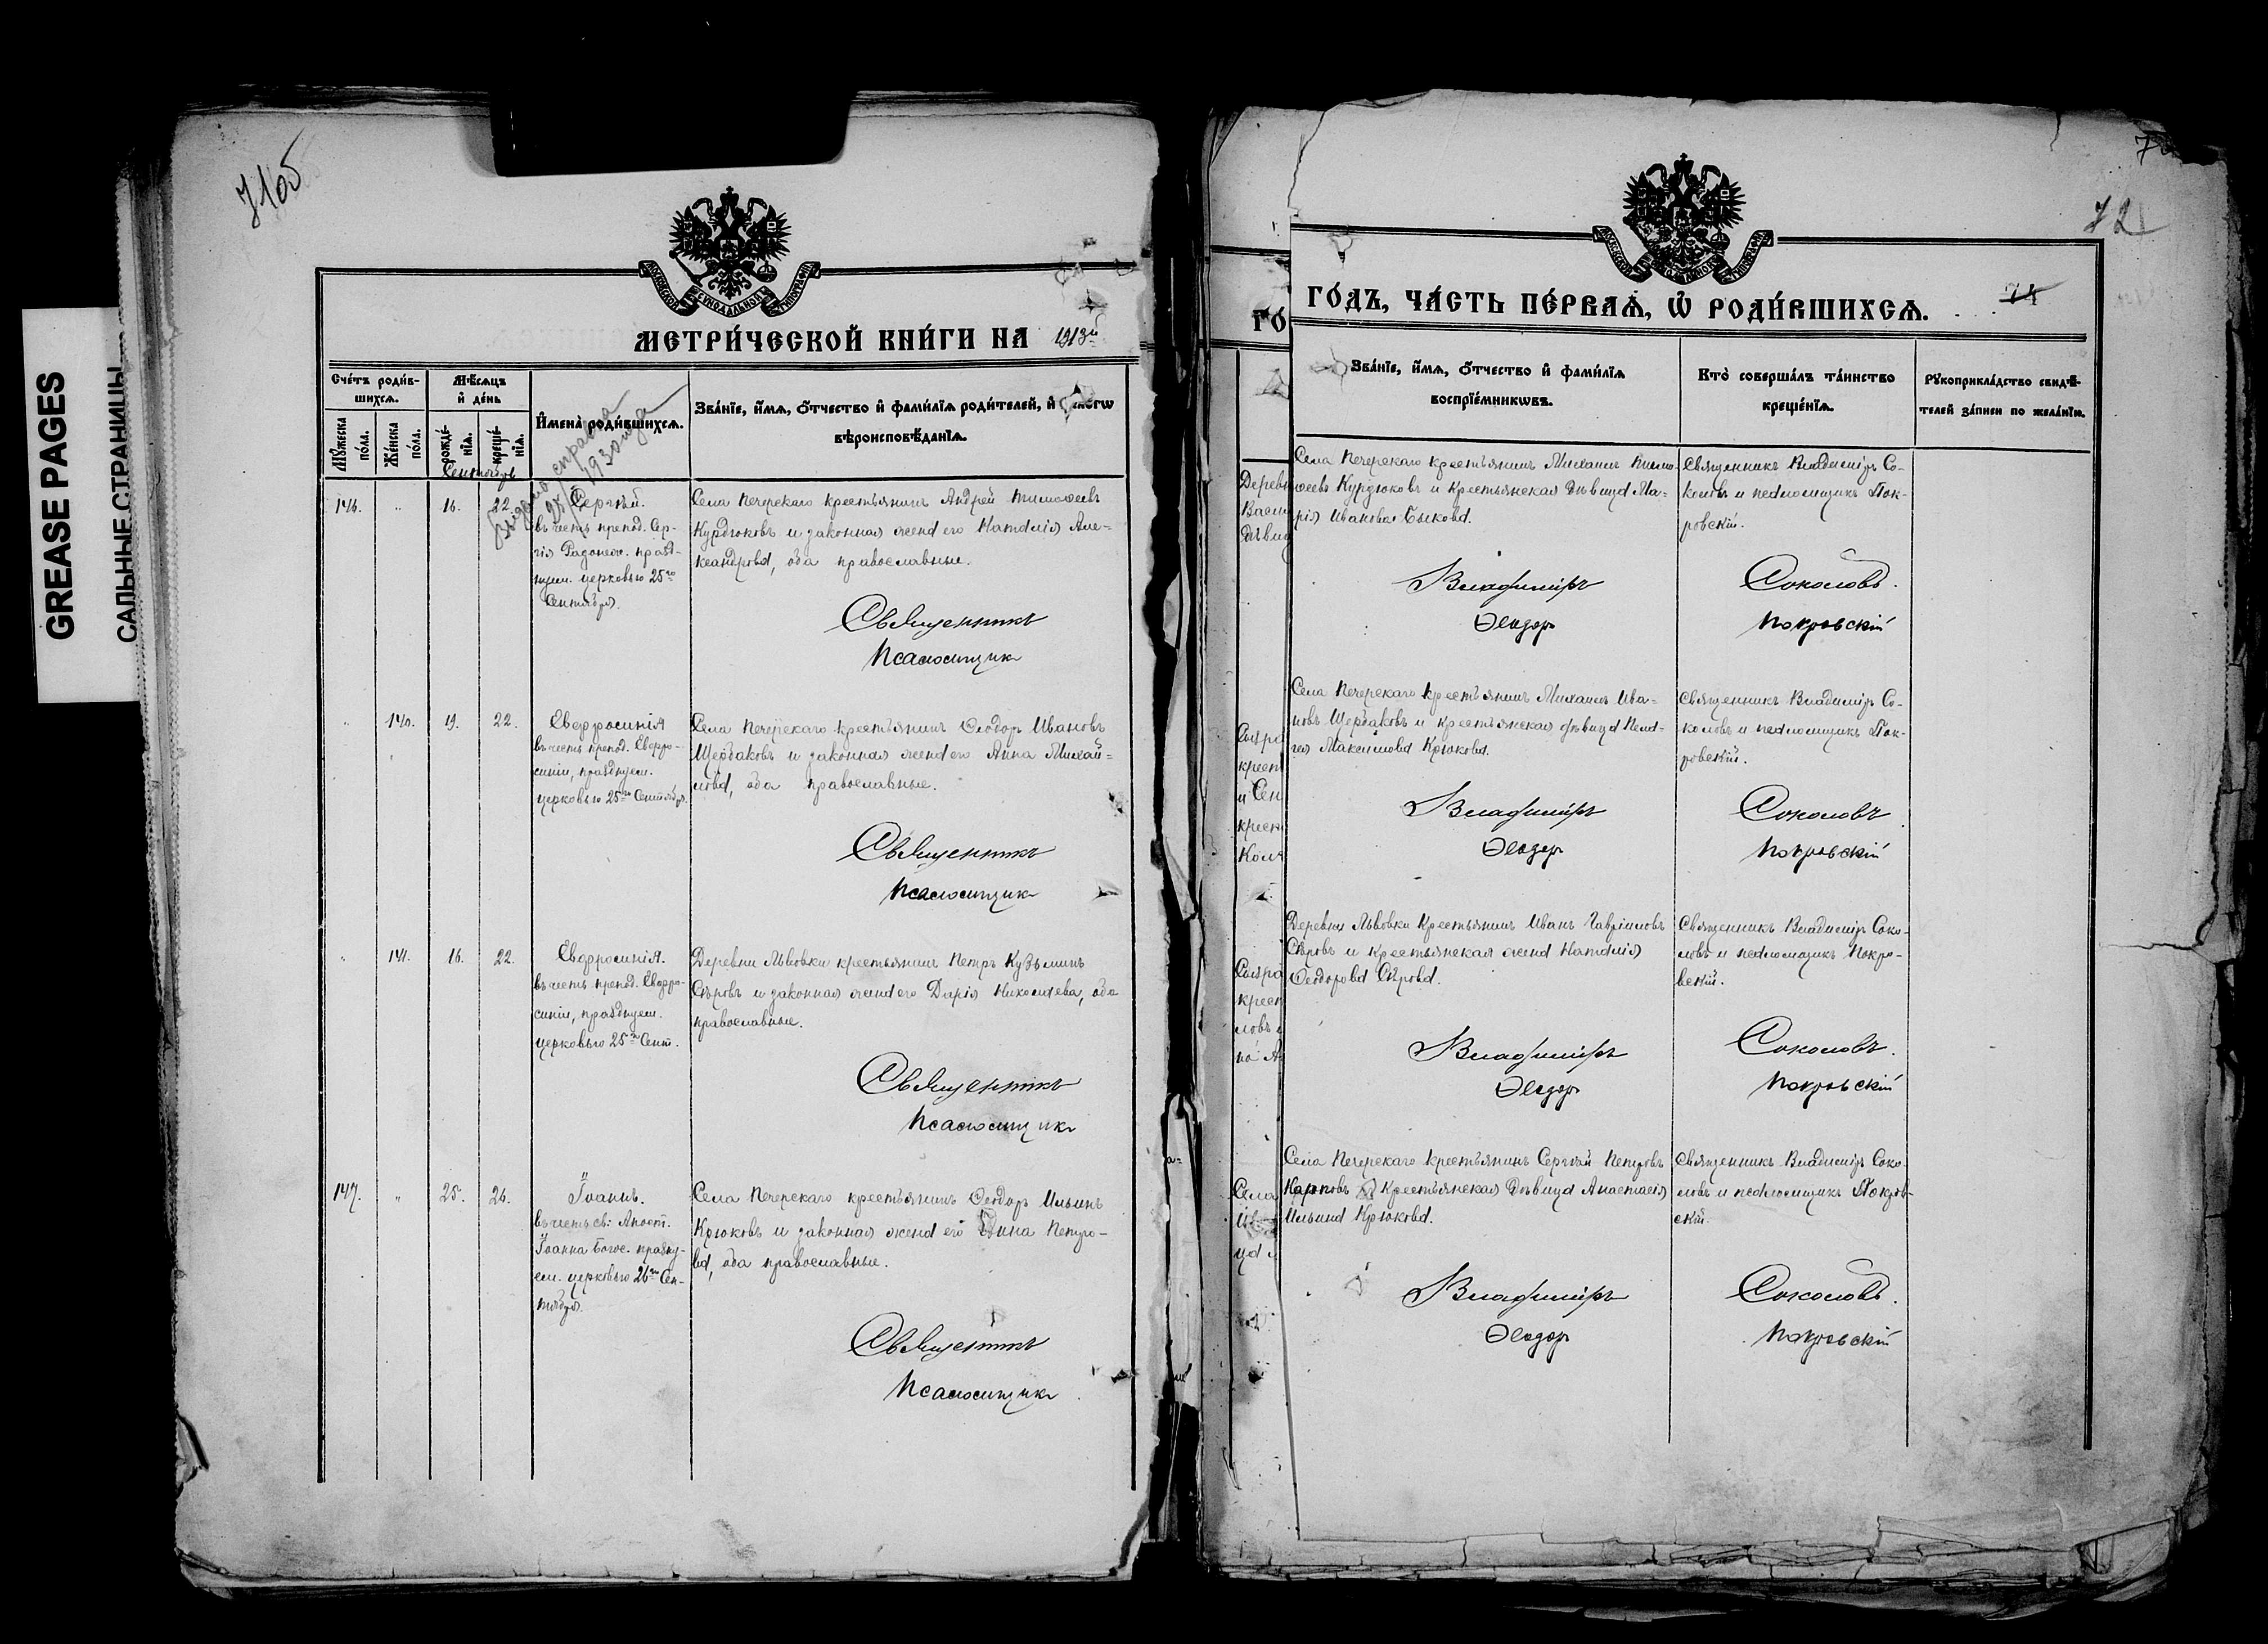 GREASE PAGES
САЛЬНЫЕ СТРАНИЦЫ
71об
МЕТРИ́ЧЕСКОЙ КНИ́ГИ НА 1913й
Сче́тъ роди́в-
шихсѧ.
Мѣ́сѧцъ
и҆ де́нь
Мꙋ́жеска
по́ла.
Же́нска
по́ла.
рожде́-
нїѧ.
креще́-
нїѧ.
И҆мена̀ роди́вшихсѧ.
Зва́нїе, и҆́мѧ, ѻ҆́тчество и҆ фами́лїѧ роди́телей, и҆
вѣроисповѣ́данїѧ.
Сентябрь
Выдана справка
1930 года
146. " 16. 22. Сергѣй.
въ честь препод. Сер-
гія Радонеж. празд-
нуем. церковью 25го
Сентября.
Села Печерскаго крестьянинъ Андрей Тимоѳеевъ
Курдюковъ и законная жена его Наталія Але-
ксандрова, оба православные.
Священникъ
Псаломщикъ
" 140. 19. 22. Евфросинія
въ честь препод. Евфро-
синіи, празднуем.
церковью 25го Сентябр.
Села Печерскаго крестьянинъ Ѳеодоръ Ивановъ
Щербаковъ и законная жена его Анна Михай-
лова, оба православные.
Священникъ
Псаломщикъ
" 141. 16. 22. Евфросинія.
въ честь препод. Евфро-
синіи, празднуем.
церковью 25го Сент.
Деревни Львовки крестьянинъ Петръ Кузьминъ
Сѣровъ и законная жена его Дарія Николаева, оба
православные.
Священникъ
Псаломщикъ
147. " 25. 26. Іоаннъ.
въ честь св: Апост.
Іоанна Богос. празну-
ем. церковью 26го Сен-
тября.
Села Печерскаго крестьянинъ Ѳеодоръ Ильинъ
Крюковъ и законная жена его Петро-
ва, оба православные.
Священникъ
Псаломщикъ
72
74
ГО́ДЪ, ЧА́СТЬ ПЕ́РВАѦ, Ѡ҆ РОДИ́ВШИХСѦ.
Зва́нїе, и҆́мѧ, ѻ҆́тчество и҆ фами́лїѧ
воспрїе́мникѡвъ.
Кто̀ соверша́лъ та́инство
креще́нїѧ.
Рꙋкоприкла́дство свидѣ́-
телей за́писи по жела́нїю.
Села Печерскаго крестьянинъ Михаилъ Тимо-
ѳеевъ Курдюковъ и крестьянская дѣвица Ма-
рія Иванова Быкова.
Священникъ Владиміръ Со-
коловъ и псаломщикъ Пок-
ровскій.
Владиміръ Соколовъ.
Ѳеодоръ Покровскій
Села Печерскаго крестьянинъ Михаилъ Ива-
новъ Щербаковъ и крестьянская дѣвица Пела-
гея Максимова Крюкова.
Священникъ Владиміръ Со-
коловъ и псаломщикъ Пок-
ровскій.
Владиміръ Соколовъ
Ѳеодоръ Покровскій
Деревни Львовки крестьянинъ Иванъ Гавріиловъ
Сѣровъ и крестьянская жена Наталія
Ѳеодорова Сѣрова.
Священникъ Владиміръ Соко-
ловъ и псаломщикъ Покро-
вскій.
Владиміръ Соколовъ.
Ѳеодоръ Покровскій
Села Печерскаго крестьянинъ Сергѣй Петровъ
Карповъ и крестьянская дѣвица Анастасія
Ильина Крюкова.
Священникъ Владиміръ Соко-
ловъ и псаломщикъ Покров-
скій.
Владиміръ Соколовъ.
Ѳеодоръ Покровскій